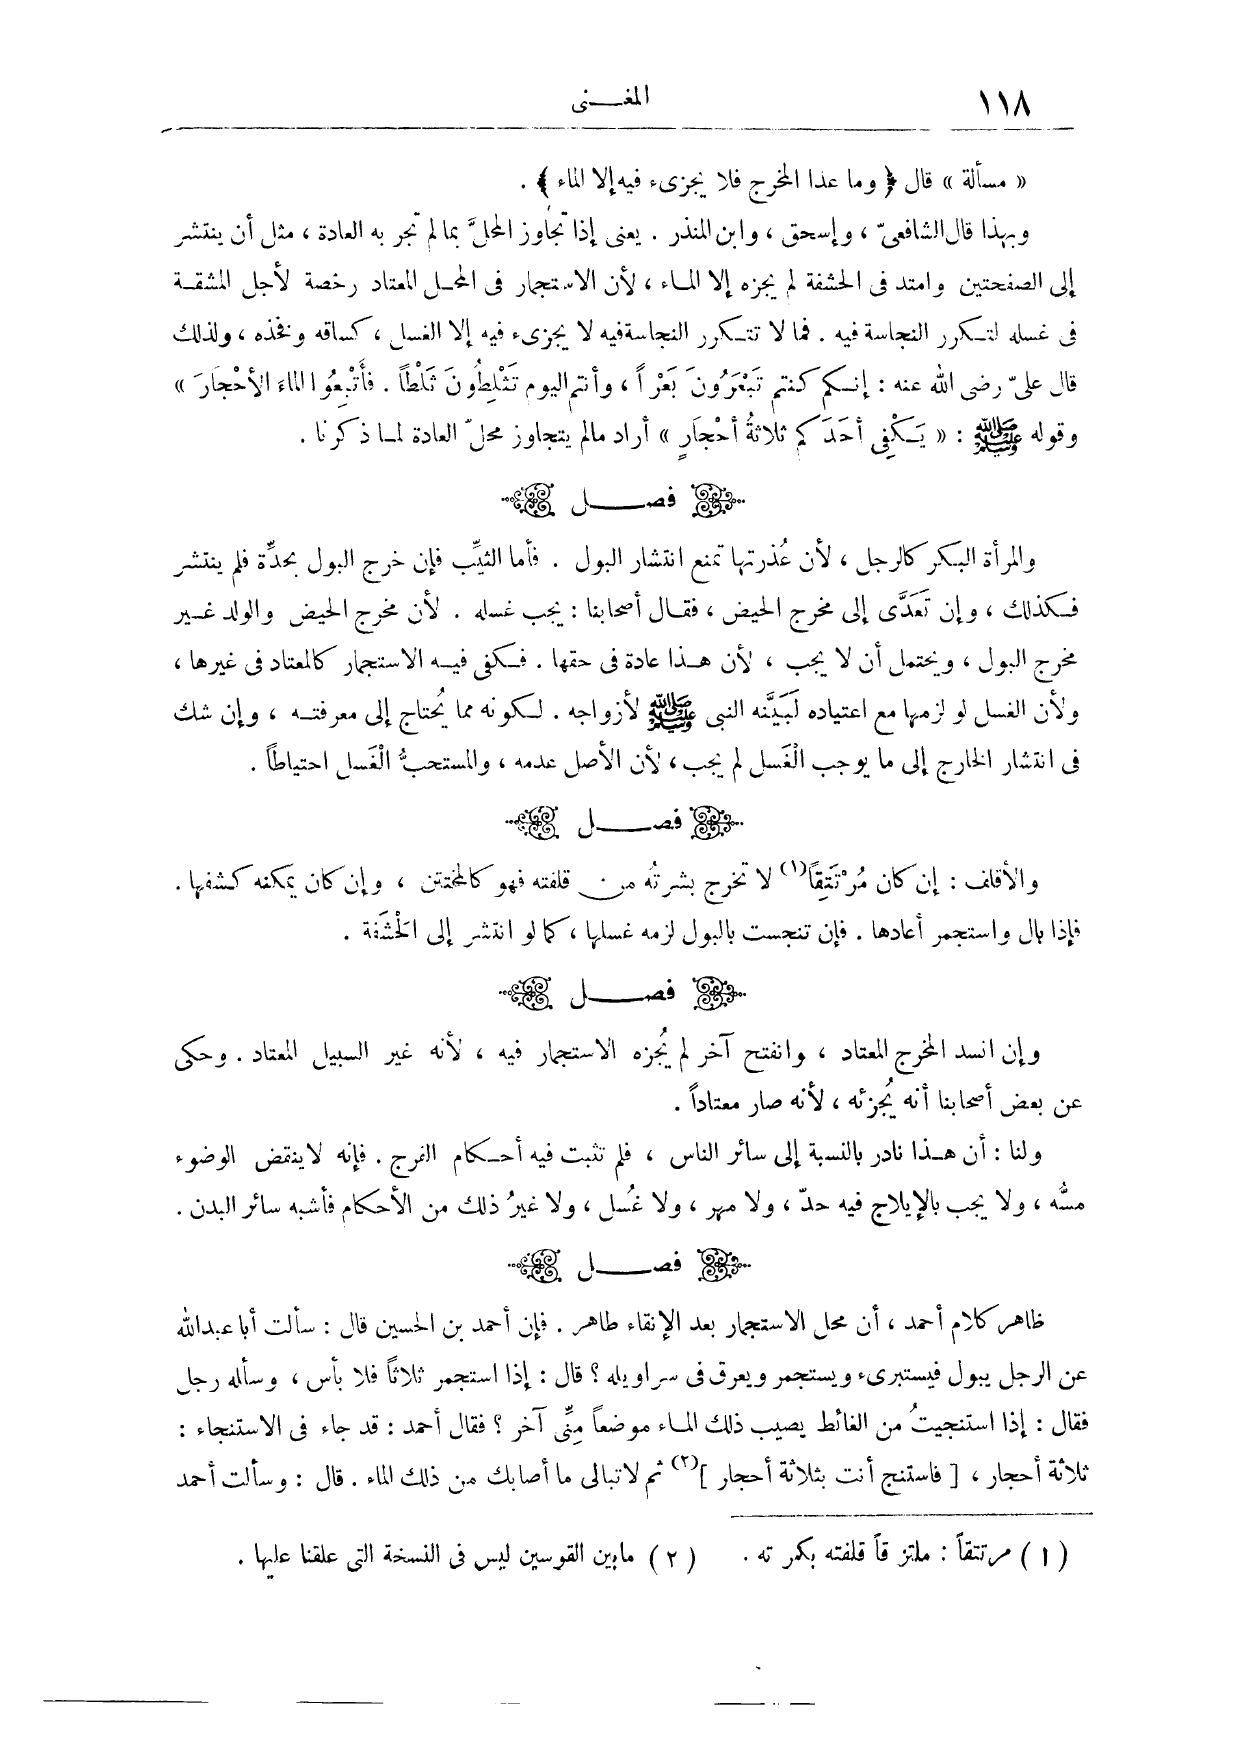 ١١٨
المغـــنى
« مسألة » قال ﴿ وما عدا المخرج فلا يجزىء فيه إلا الماء ﴾ .
وبهذا قال الشافعىّ ، وإسحق ، وابن المنذر . يعنى إذا تجاوز المحلَّ بما لم تجر به العادة ، مثل أن ينتشر
إلى الصفحتين وامتد فى الحشفة لم يجزه إلا المـاء ، لأن الاستجمار فى المحـل المعتاد رخصة لأجل المشقـة
فى غسله لتـكرر النجاسة فيه . فما لا تتـكرر النجاسة فيه لا يجزىء فيه إلا الغسل ، كساقه وفخذه ، ولذلك
قال علىّ رضى الله عنه : إنـكم كنتم تَبْعَرُونَ بَعْراً ، وأنتم اليوم تَثْلِطُونَ ثَلْطاً . فأَتْبِعُوا الماءَ الأحْجارَ »
وقوله ﷺ : « يَـكْفِى أحَدَكم ثلاثةُ أحْجارٍ » أراد مالم يتجاوز محلّ العادة لمـا ذكرنا .
فصـــــل
والمرأة البـكر كالرجل ، لأن عُذرتها تمنع انتشار البول . فأما الثيِّب فإن خرج البول بحدِّة فلم ينتشر
فـكذلك ، وإن تَعَدَّى إلى مخرج الحيض ، فقـال أصحابنا : يجب غسله . لأن مخرج الحيض والولد غـير
مخرج البول ، ويحتمل أن لا يجب ، لأن هـذا عادة فى حقها . فـكفى فيـه الاستجمار كالمعتاد فى غيرها ،
ولأن الغسل لو لزمها مع اعتياده لَبَيَّنه النبى ﷺ لأزواجه . لـكونه مما يُحتاج إلى معرفتـه ، وإن شك
فى انتشار الخارج إلى ما يوجب الْغَسل لم يجب ، لأن الأصل عدمه ، والمستحبُّ الْغَسل احتياطاً .
فصـــــل
والأقلف : إن كان مُرْتَتِقاً(١) لا تخرج بشرتُه من قلفته فهو كالمختتن ، وإن كان يمكنه كشفها .
فإذا بال واستجمر أعادها . فإن تنجست بالبول لزمه غسلها ، كما لو انتشر إلى الْحَشَفَة .
فصـــــل
وإن انسد المخرج المعتاد ، وانفتح آخر لم يُجزه الاستجمار فيه ، لأنه غير السبيل المعتاد . وحكى
عن بعض أصحابنا أنه يُجزئه ، لأنه صار معتاداً .
ولنا : أن هـذا نادر بالنسبة إلى سائر الناس ، فلم تثبت فيه أحـكام الفرج . فإنه لاينقض الوضوء
مسُّه ، ولا يجب بالإيلاج فيه حدّ ، ولا مهر ، ولا غُسل ، ولا غيرُ ذلك من الأحكام فأشبه سائر البدن .
فصـــــل
ظاهر كلام أحمد ، أن محل الاستجمار بعد الإنقاء طاهر . فإن أحمد بن الحسين قال : سألت أبا عبدالله
عن الرجل يبول فيستبرىء ويستجمر ويعرق فى سراويله ؟ قال : إذا استجمر ثلاثاً فلا بأس ، وسأله رجل
فقال : إذا استنجيتُ من الغائط يصيب ذلك المـاء موضعاً مِنِّى آخر ؟ فقال أحمد : قد جاء فى الاستنجاء :
ثلاثة أحجار ، [ فاستنج أنت بثلاثة أحجار ](٢) ثم لا تبالى ما أصابك من ذلك الماء . قال : وسألت أحمد
(١) مرتتقاً : ملتزقاً قلفته بكمرته . (٢) مابين القوسين ليس فى النسخة التى علقنا عليها .